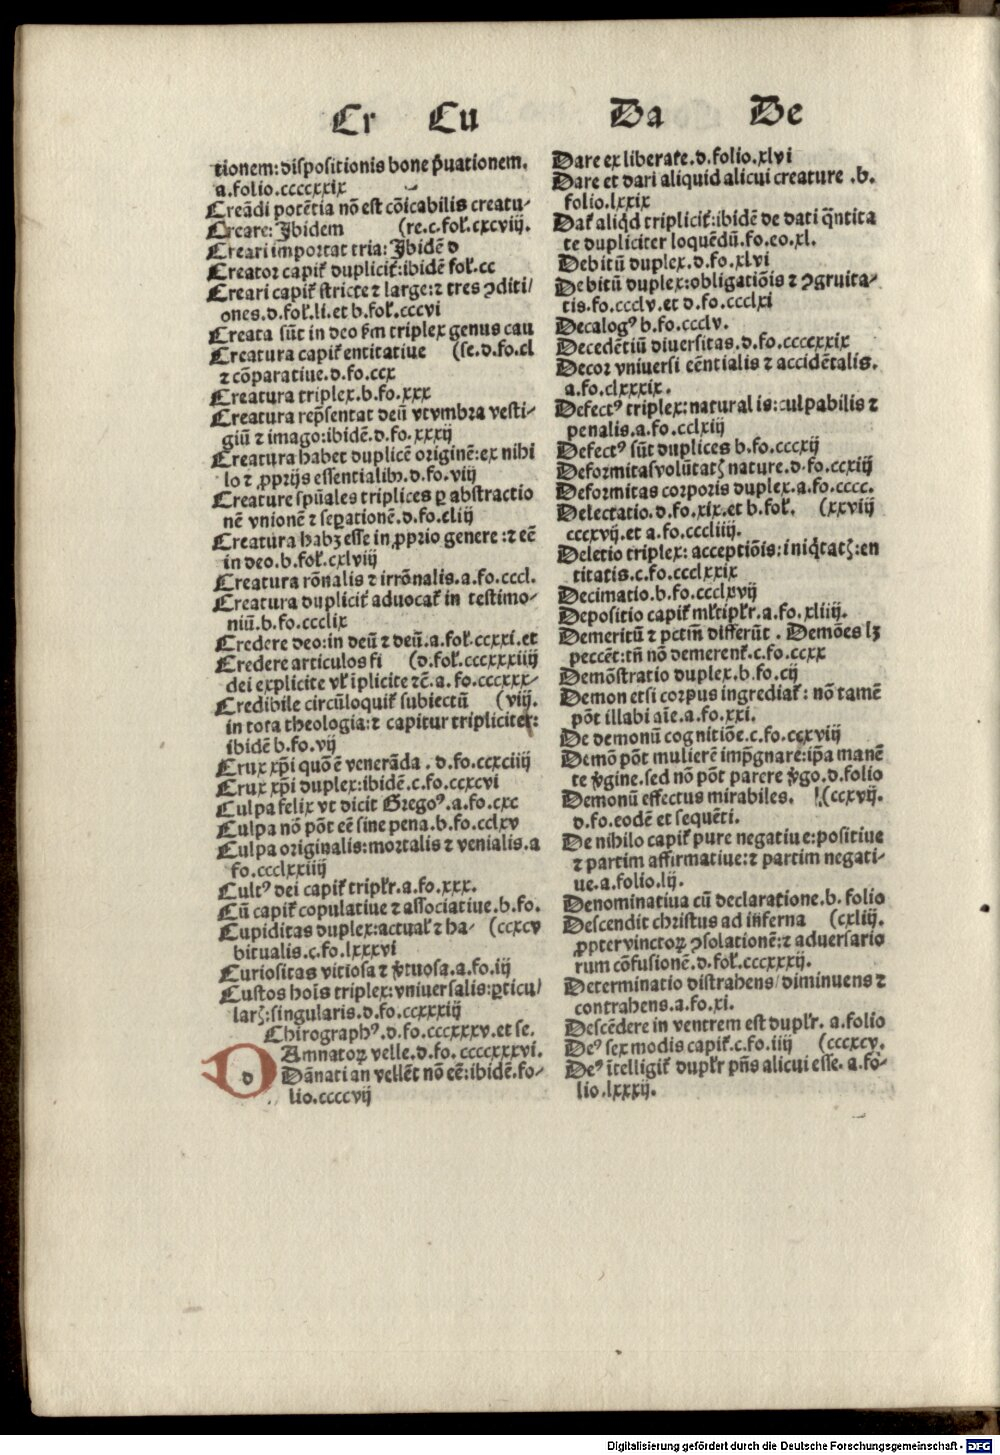 Cr Cu Da De
tionem:dispositionis bone p̄uationem.
a.folio.ccccxxix
Creādi potētia nō est cōicabilis creatu-
Creare: Ibidem (re.c.fol̕.cxcviij.
Creari importat tria: Ibidē d
Creator capit̕ duplicit̕:ibidē fol̕.cc
Creari capit̕ stricte ⁊ large:⁊ tres ꝯditi/
ones.d.fol̕.li.et b.fol̕.cccvi
Creata sūt in deo ẜm triplex genus cau
Creatura capit̕ entitatiue (se.d.fo.cl
⁊ cōparatiue.d.fo.ccx
Creatura triplex.b.fo.xxx
Creatura rep̄sentat deū vt vmbra vesti-
giū ⁊ imago:ibidē.d.fo.xxxij
Creatura habet duplicē originē:ex nihi
lo ⁊ ꝓprijs essentialibꝫ.d.fo.viij
Creature sp̄uales triplices ꝑ abstractio
nē vnionē ⁊ seꝑationē.d.fo.cliij
Creatura habꝫ esse in ꝓprio genere :⁊ eē
in deo.b.fol̕.cxlviij
Creatura rōnalis ⁊ irrōnalis.a.fo.cccl.
Creatura duplicit̕ aduocat̕ in testimo-
niū.b.fo.ccclix
Credere deo:in deū ⁊ deū.a.fol̕.ccxxi.et
Credere articulos fi (d.fol̕.cccxxxiiij
dei explicite vl̕ īplicite ⁊c̄.a.fo.cccxxx-
Credibile circūloquit̕ subiectū (viij.
in tota theologia:⁊ capitur tripliciter:
ibidē b.fo.vij
Crux xp̄i quō ē venerāda . d.fo.ccxciiij
Crux xp̄i duplex:ibidē.c.fo.ccxcvi
Culpa felix vt dicit Gregoꝰ.a.fo.cxc
Culpa nō pōt eē sine pena.b.fo.cclxv
Culpa originalis:mortalis ⁊ venialis.a
fo.ccclxxiiij
Cultꝰ dei capit̕ tripl̕r.a.fo.xxx.
Cū capit̕ copulatiue ⁊ associatiue.b.fo.
Cupiditas duplex:actual̕ ⁊ ha- (ccxcv
bitualis.c.fo.lxxxvi
Curiositas vitiosa ⁊ v̕tuosa.a.fo.iij
Custos hoīs triplex:vniuersalis:ꝑticu/
larꝭ:singularis.d.fo.ccxxxiij
Chirographꝰ.d.fo.cccxxxv.et se.
d
Amnatoꝝ velle.d.fo.ccccxxxvi.
Dānati an vellēt nō eē:ibidē.fo-
lio.ccccvij
Dare ex liberate.d.folio.xlvi
Dare et dari aliquid alicui creature .b.
folio.lxxix
Dat̕ aliqd̄ triplicit̕:ibidē de dati q̄ntita
te dupliciter loquēdū.fo.eo.xl.
Debitū duplex.d.fo.xlvi
Debitū duplex:obligatiōis ⁊ ꝯgruita-
tis.fo.ccclv.et d.fo.ccclxi
Decalogꝰ b.fo.ccclv.
Decedētiū diuersitas.d.fo.ccccxxix
Decor vniuersi eēntialis ⁊ accidētalis.
a.fo.clxxxix.
Defectꝰ triplex:naturalis:culpabilis ⁊
penalis.a.fo.cclxiij
Defectꝰ sūt duplices b.fo.cccxij
Deformitas volūtatꝭ nature.d.fo.ccxiij
Deformitas corporis duplex.a.fo.cccc.
Delectatio.d.fo.xix.et b.fol̕. (xxviij
cccxvij.et a.fo.cccliiij.
Deletio triplex: acceptiōis:iniq̄tatꝭ:en
titatis.c.fo.ccclxxix
Decimatio.b.fo.ccclxvij
Depositio capit̕ ml̕tipl̕r.a.fo.xliiij.
Demeritū ⁊ pctm̄ differūt . Demōes lꝫ
peccēt:tn̄ nō demerent̕.c.fo.ccxx
Demōstratio duplex.b.fo.cij
Demon etsi corpus ingrediat̕: nō tamē
pōt illabi aīe.a.fo.xxi.
De demonū cognitiōe.c.fo.ccxviij
Demō pōt mulierē imp̄gnare:ip̄a manē
te v̕gine.sed nō pōt parere v̕go.d.folio
Demonū effectus mirabiles. (ccxvij.
d.fo.eodē et sequēti.
De nihilo capit̕ pure negatiue:positiue
⁊ partim affirmatiue:⁊ partim negati-
ue.a.folio.lij.
Denominatiua cū declaratione.b.folio
Descendit christus ad inferna (cxliij.
ꝓpter vinctoꝝ ꝯsolationē:⁊ aduersario
rum cōfusionē.d.fol̕.cccxxxij.
Determinatio distrahens/diminuens ⁊
contrahens.a.fo.xi.
Descēdere in ventrem est dupl̕r. a.folio
Deꝰ sex modis capit̕.c.fo.iiij (cccxcv.
Deꝰ ītelligit̕ dupl̕r pn̄s alicui esse. a.fo-
lio.lxxxij.
Digitalisierung gefördert durch die Deutsche Forschungsgemeinschaft - DFG